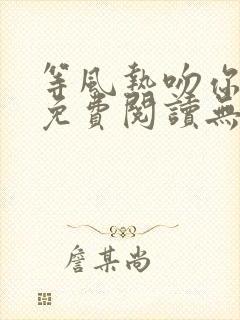 等风热吻你
免費閱讀無
詹某尚